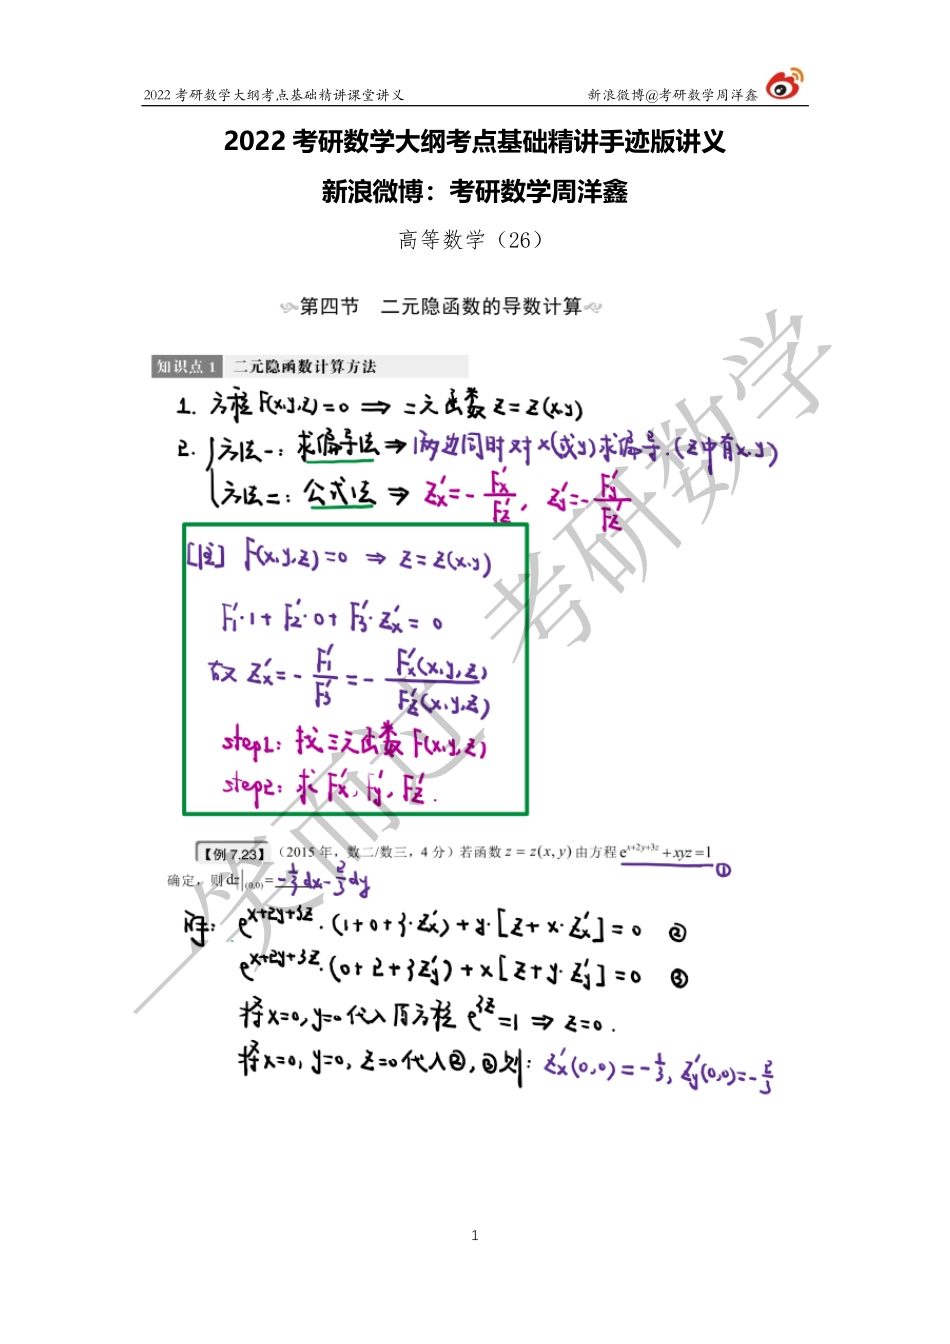 2022 考研数学大纲考点基础精讲课堂讲义 新浪微博@考研数学周洋鑫
2022 考研数学大纲考点基础精讲手迹版讲义
新浪微博：考研数学周洋鑫
高等数学（26）
第四节 二元隐函数的导数计算
知识点 1 二元隐函数计算方法
1. 方程 F(x,y,z)=0 ⇒ 二元函数 z=z(x,y)
2. 方法一：求偏导法 ⇒ 两边同时对 x(或y)求偏导.(z中有x,y)
方法二：公式法 ⇒ z'x=-F'x/F'z, z'y=-F'y/F'z
[注] F(x,y,z)=0 ⇒ z=z(x,y)
F'1·1+F'2·0+F'3·z'x=0
故 z'x=-F'1/F'3=-F'x(x,y,z)/F'z(x,y,z)
step1: 找三元函数 F(x,y,z)
step2: 求 F'x, F'y, F'z.
【例 7.23】（2015 年，数二/数三，4 分）若函数 z = z(x, y) 由方程 e^{x+2y+3z} + xyz = 1 ①
确定，则 dz|(0,0) = -1/3 dx - 2/3 dy
解: e^{x+2y+3z}·(1+0+3·z'x)+y·[z+x·z'x]=0 ②
e^{x+2y+3z}·(0+2+3z'y)+x[z+y·z'y]=0 ③
将x=0,y=0代入原方程 e^{3z}=1 ⇒ z=0.
将x=0, y=0, z=0代入②,③则: z'x(0,0)=-1/3, z'y(0,0)=-2/3
一笑而过 考研数学
1